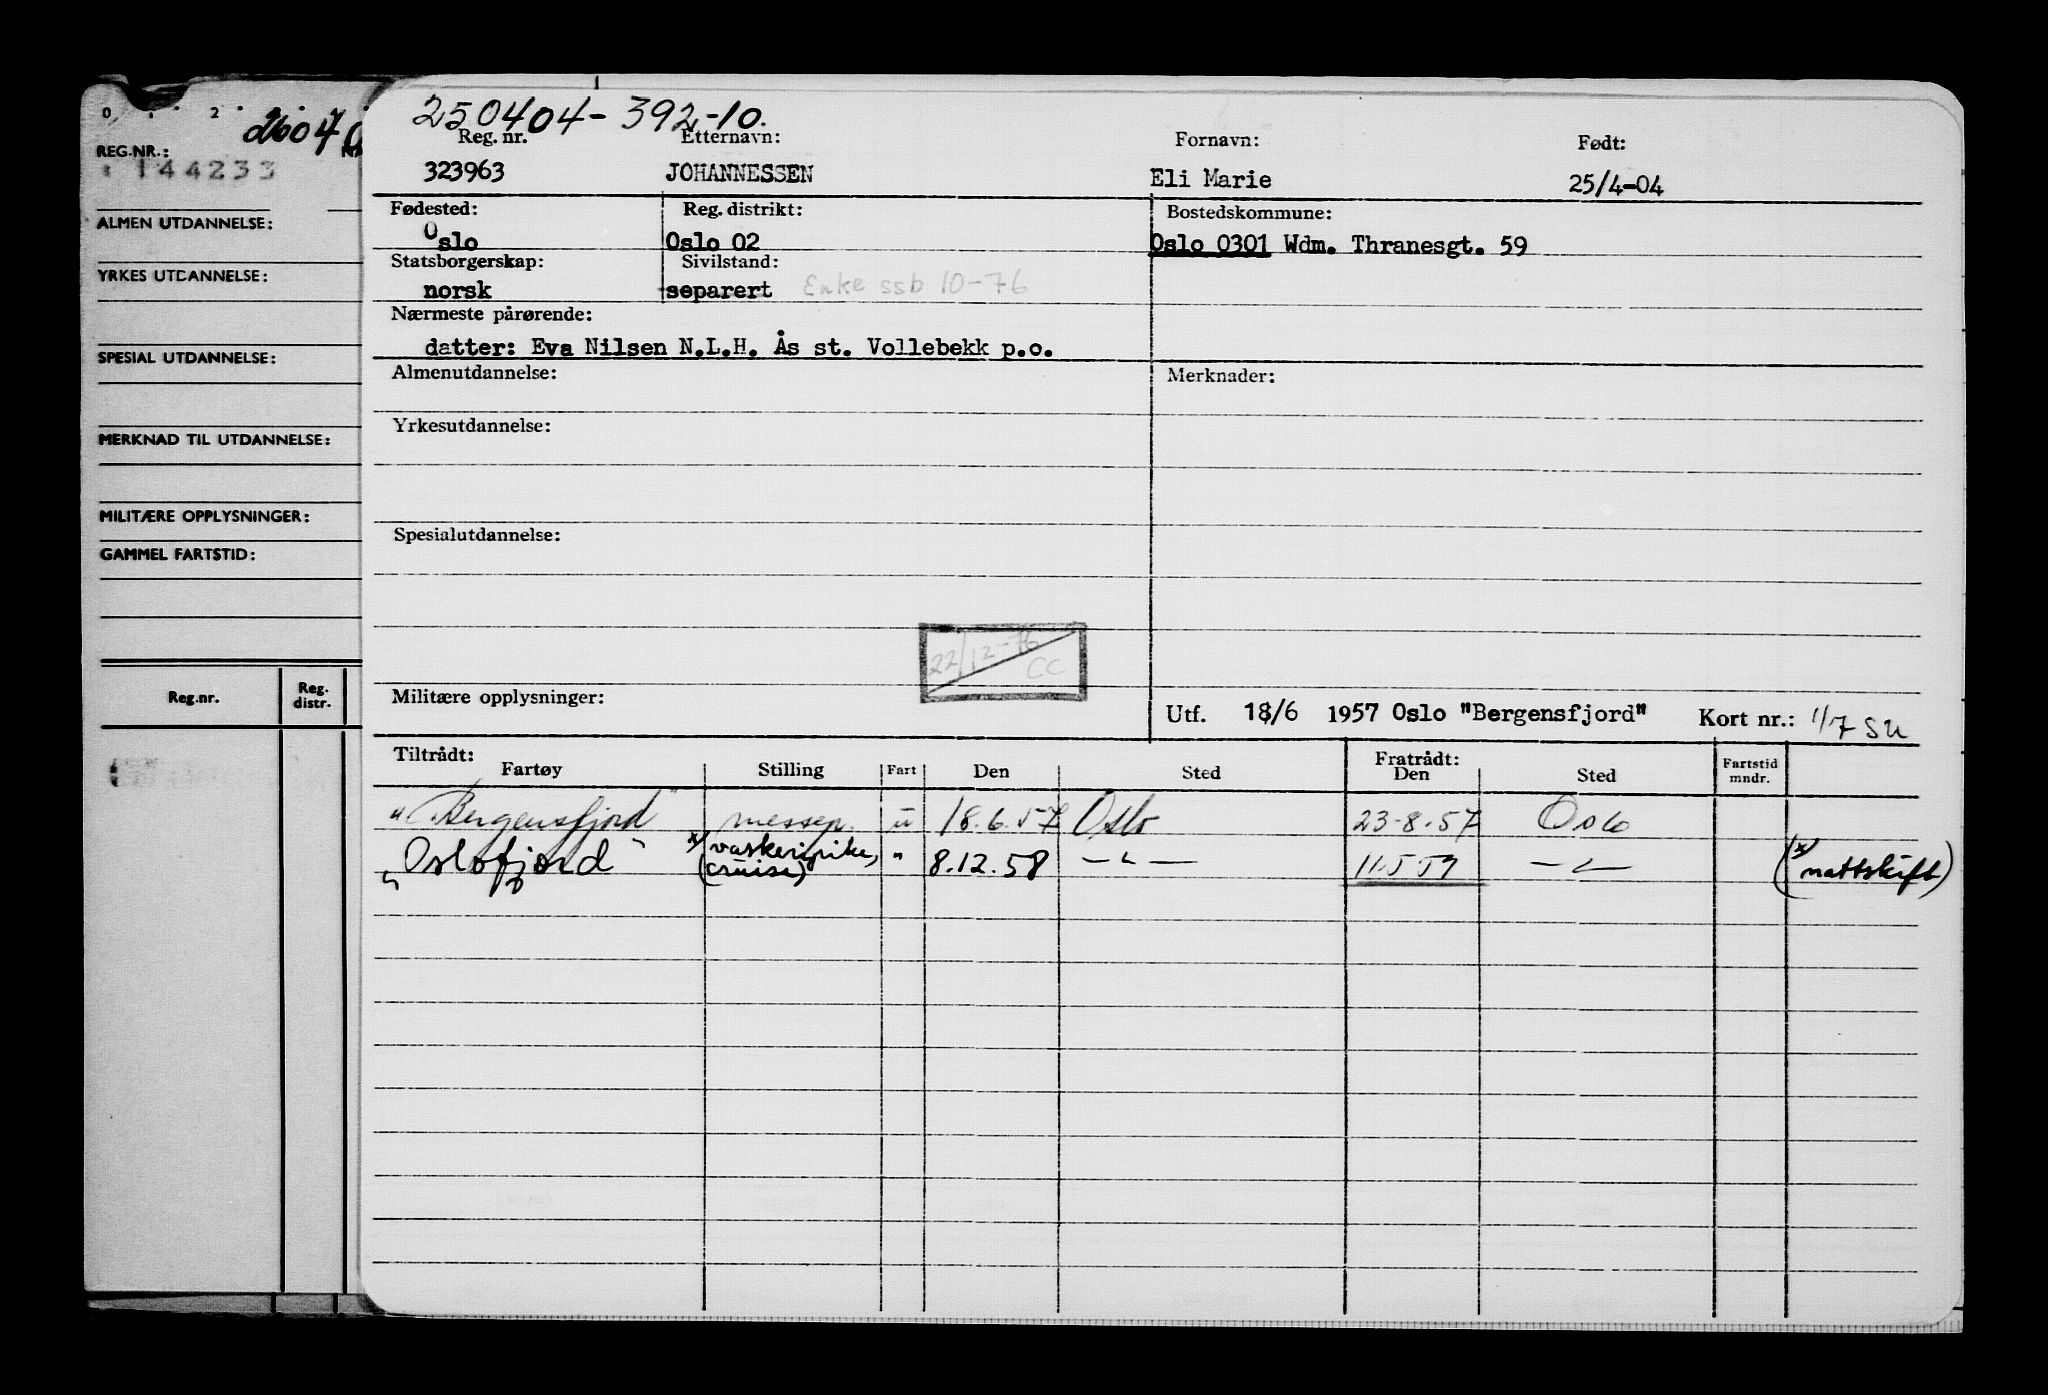 0 . 2 .
REG.NR.:
144233
ALMEN UTDANNELSE:
YRKES UTDANNELSE:
SPESIAL UTDANNELSE:
MERKNAD TIL UTDANNELSE:
MILITÆRE OPPLYSNINGER:
GAMMEL FARTSTID:
Reg.nr. Reg. distr.
250404-392-10.
Reg. nr. Etternavn: Fornavn: Født:
323963 JOHANNESSEN Eli Marie 25/4-04
Fødested: Reg. distrikt: Bostedskommune:
Oslo Oslo 02 Oslo 0301 Wdm. Thranesgt. 59
Statsborgerskap: Sivilstand:
norsk separert Enke ssb 10-76
Nærmeste pårørende:
datter: Eva Nilsen N.L.H. Ås st. Vollebekk p.o.
Almenutdannelse: Merknader:
Yrkesutdannelse:
Spesialutdannelse:
22/12-76 CC
Militære opplysninger:
Utf. 18/6 1957 Oslo "Bergensfjord" Kort nr.: 1/7 SU
Tiltrådt: Fratrådt:
Fartøy Stilling Fart Den Sted Den Sted Fartstid mndr.
"Bergensfjord" messep. u 18.6.57 Oslo 23-8.57 Oslo
"Oslofjord" x) vaskeripike, (cruise) " 8.12.58 — " — 11.5 59 — " — (x) nattskift)